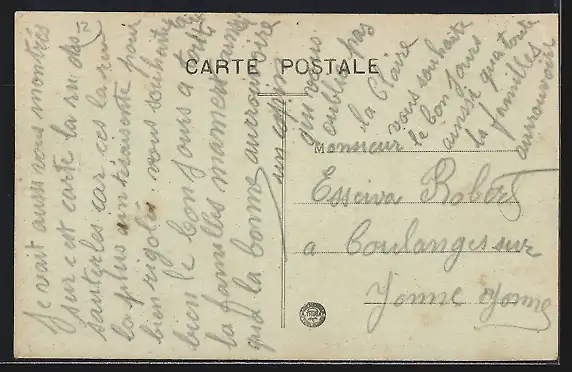 CARTE POSTALE
Je vait aussi vous montrés
sur c est carte la rue des
sauterles car ces la rue
la plus interaisente pour
bien rigolés vous souhaite
bien le bon jours a toute
la familles mament
qua la bonne aurrevoire
un copain
qui vous
oublie pas
la Claire
vous souhaite
le bon jours
ainssi qua toute
la familles
aurrouvoir
Monsieur
Esseiva Robert
a Coulanges sur
Yonne Yonne